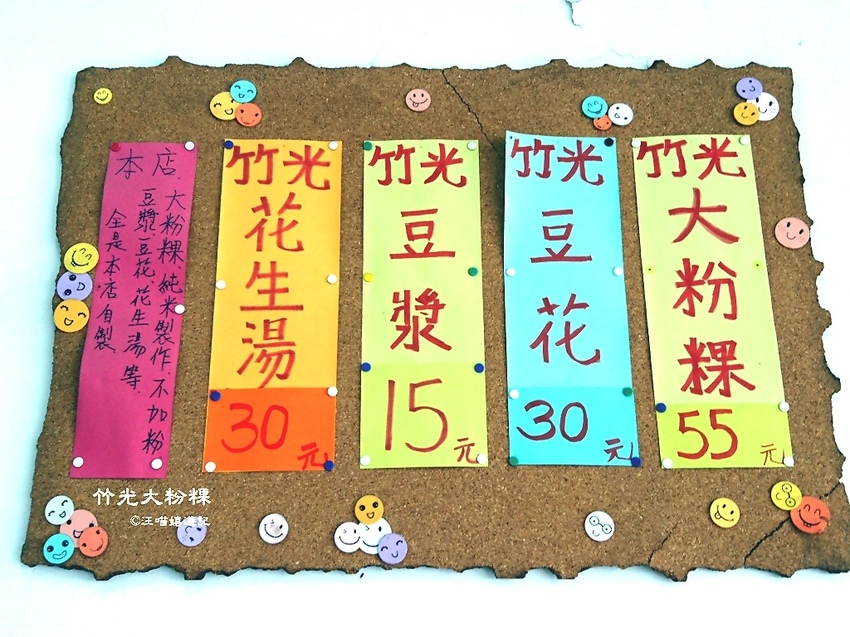 竹光
大粉粿
55元
竹光
豆花
30元
竹光
豆漿
15元
竹光
花生湯
30元
本店
大粉粿、純米製作、不加粉
豆漿、豆花、花生湯等、
全是本店自製、
竹光大粉粿
©汪喵嬉遊記